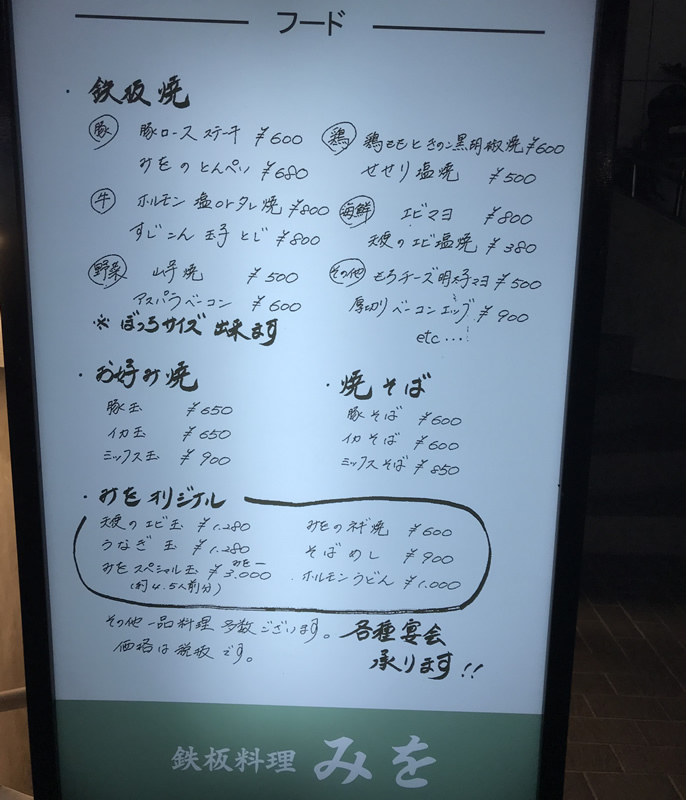 フード
・鉄板焼
豚 豚ロースステーキ ¥600
みをのとんペソ ¥680
牛 ホルモン 塩orタレ焼 ¥800
すじこん玉子とじ ¥800
野菜 山芋焼 ¥500
アスパラベーコン ¥600
※ぼっちサイズ出来ます
鶏 鶏ももときのこ黒胡椒焼 ¥600
せせり塩焼 ¥500
海鮮 エビマヨ ¥800
天使のエビ塩焼 ¥380
その他 もちチーズ明太マヨ ¥500
厚切りベーコンエッグ ¥900
etc…
・お好み焼
豚玉 ¥650
イカ玉 ¥650
ミックス玉 ¥900
・焼そば
豚そば ¥600
イカそば ¥600
ミックスそば ¥850
・みをオリジナル
天使のエビ玉 ¥1.280
うなぎ玉 ¥1.280
みをスペシャル玉 ¥3.000
(約4.5人前分)
みをのネギ焼 ¥600
そばめし ¥900
ホルモンうどん ¥1.000
その他一品料理多数ございます。
価格は税抜です。
各種宴会
承ります!!
鉄板料理 みを